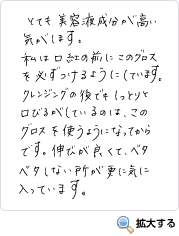 とても美容液成分が高い
気がします。
私は口紅の前にこのグロス
を必ずつけるようにしています。
クレンジングの後でもしっとりと
口びるがしているのは、この
グロスを使うようになってから
です。伸びが良くて、ベタ
ベタしない所が更に気に
入っています。
拡大する